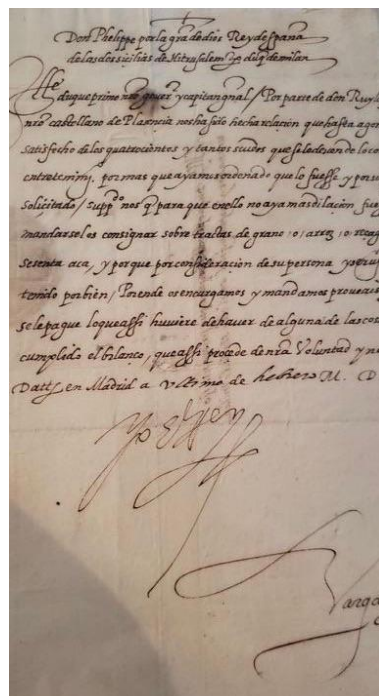 Don Phelippe por la gra de dios Rey de españa
de las dos sicilias de Hierusalem &c duq de milan
Illre
duque primo nro gover.or y capitan gnal / Por parte de don Ruy
nrō castellano de Plasencia nos ha sido hecha relacion que hasta agor
satisfecho de los quatrocientos y tantos scudos que se le devian de lo co
entretenimy por mas que ayamos ordonado que lo fuesse y por su
solicitado / supp.do nos q para que en ello no aya mas dilacion fue
mandarseles consignar sobre tractas de grano o arroz o recag
sesenta aca, y porque por consideracion de su persona y servi
tenido por bien / Por ende os encargamos y mandamos proveais
se le pague lo que assi huviere de haver de alguna de las cos
cumplido el bilanço, que assi procede de nrā voluntad y n
Datt en Madrid a ultimo de hebrero M. D
Vargas